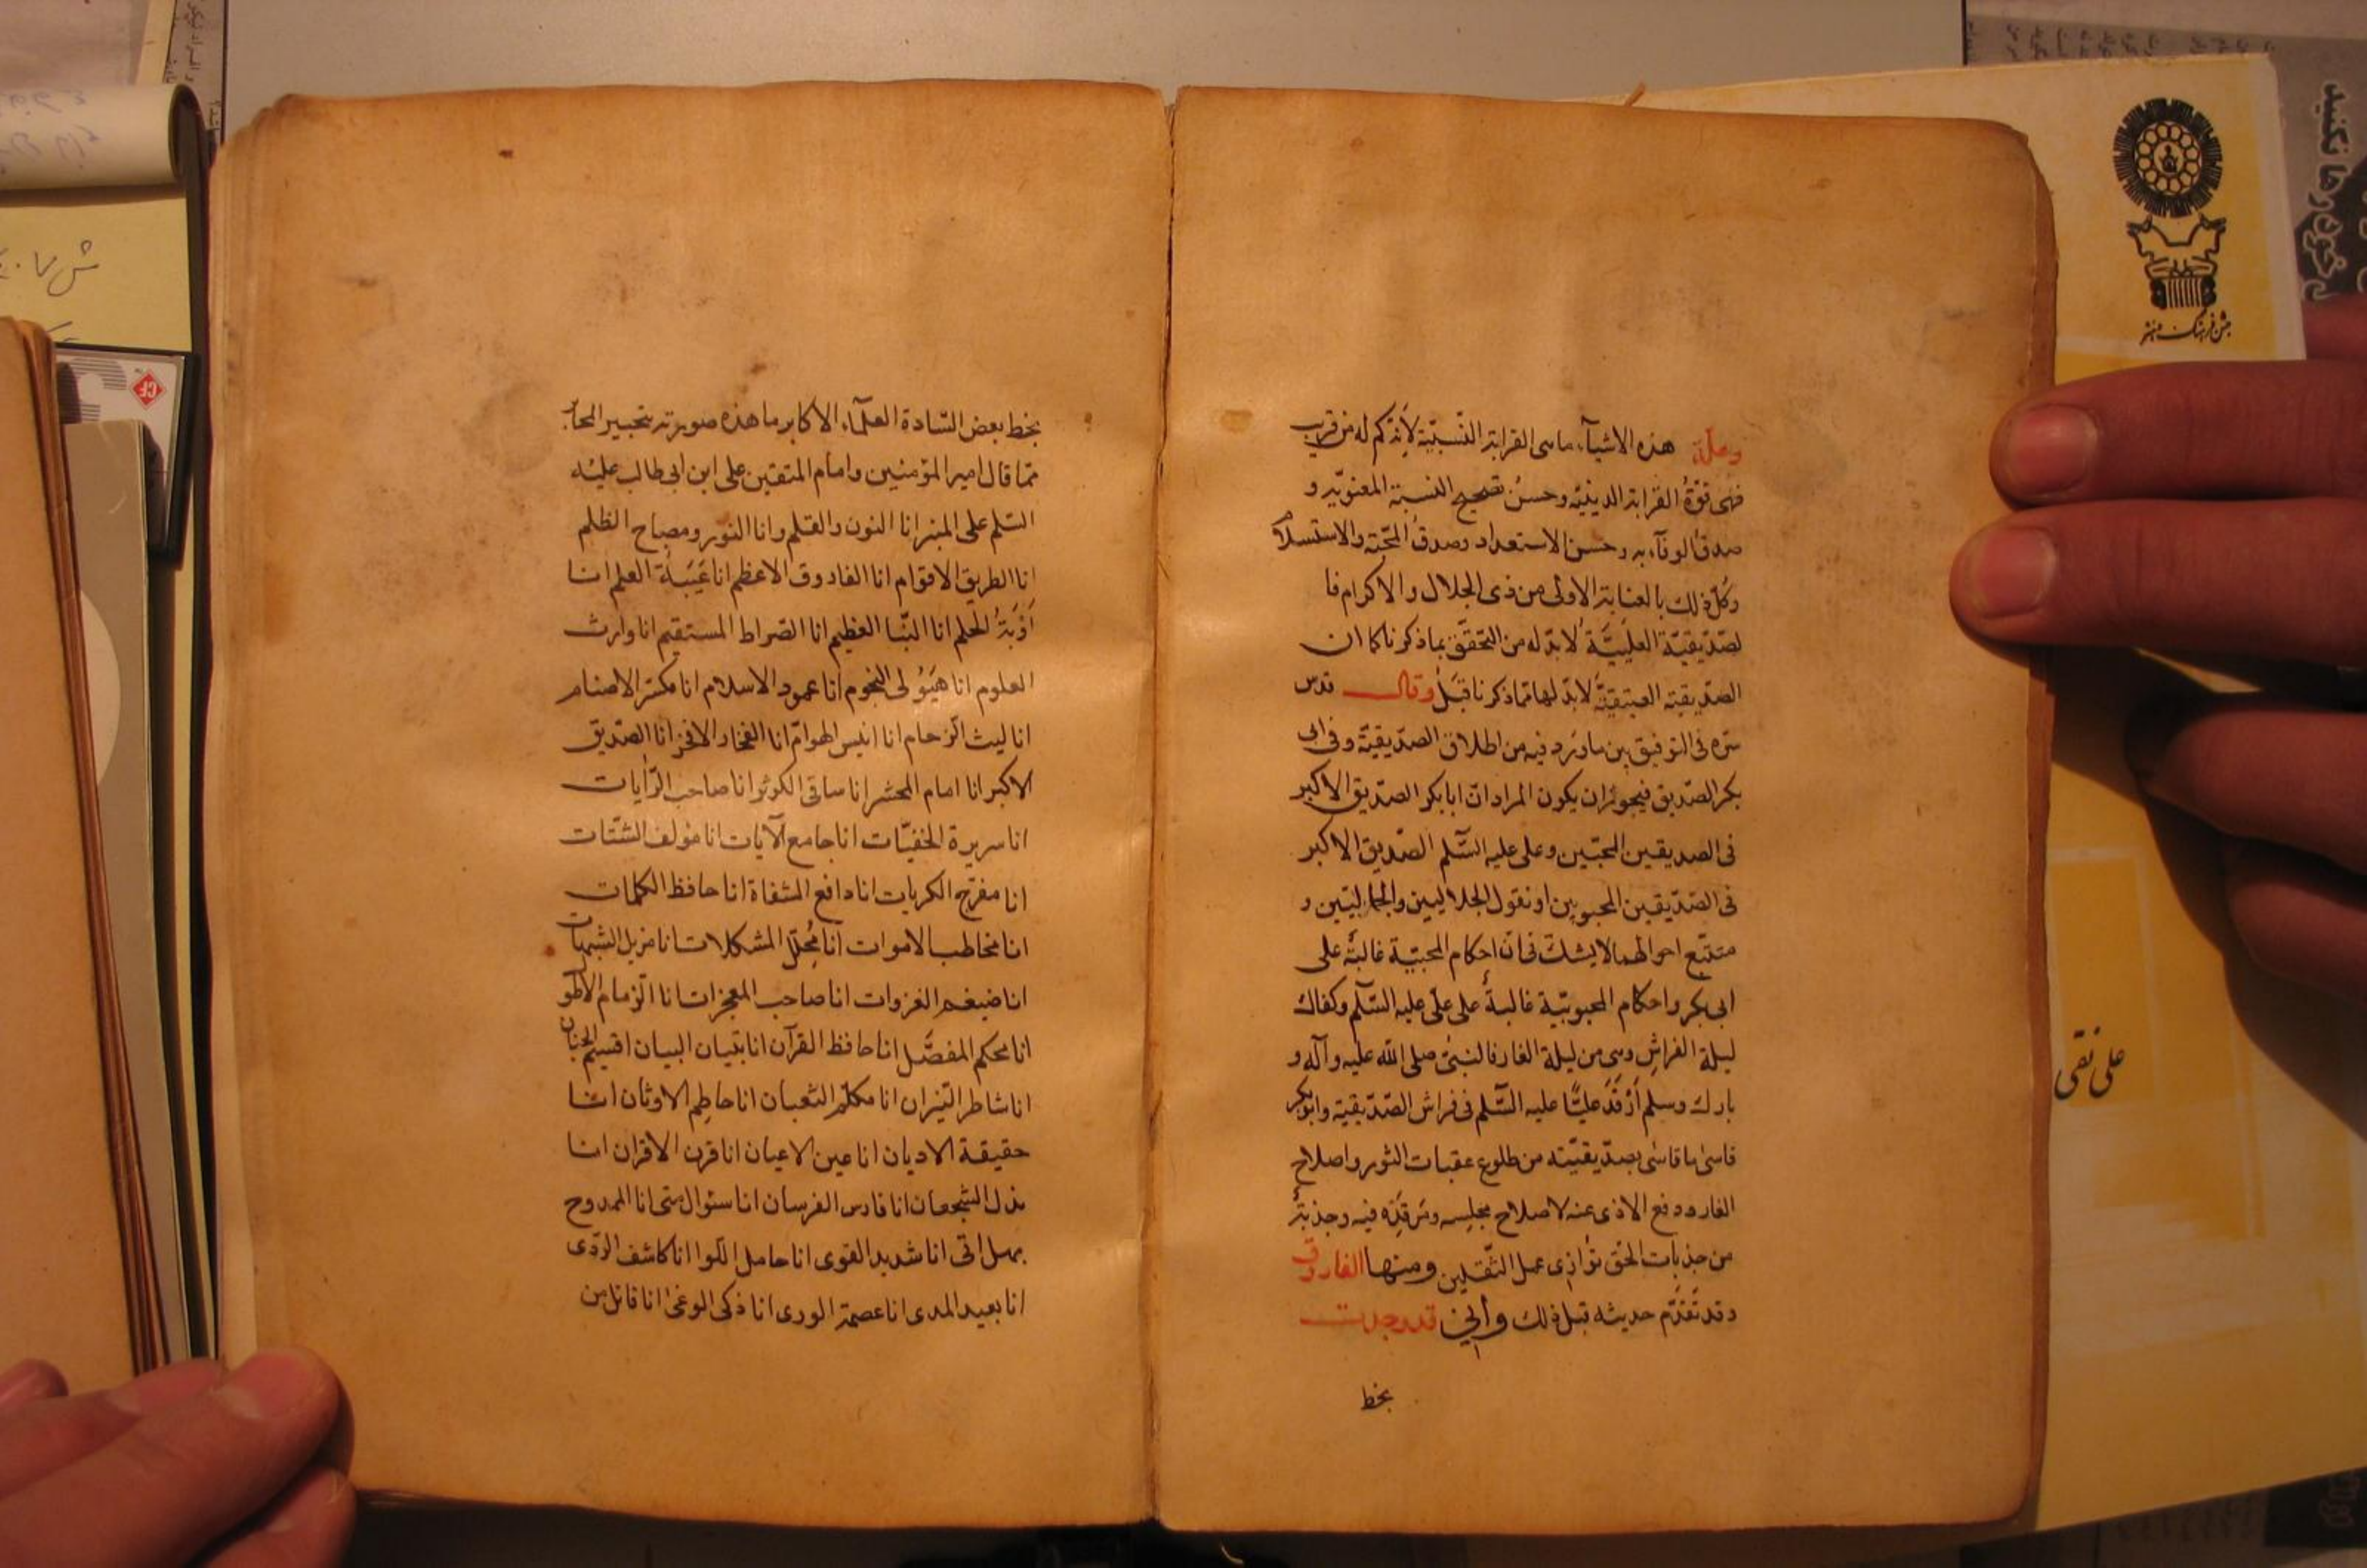 وعلّة هذه الاشيآء ماهى القرابة النّسبيّة لأنه كم له من قريب
فهى قوّةُ القرابة الدينيّة وحسنُ تصحيح النسبة المعنويّة و
صدقُ الوفآء به وحسن الاستعداد وصدقُ المحبّة والاستسلام
وكلّ ذلك بالعناية الاولى من ذى الجلال والاكرام فا
لصّدّيقيّة العليّيّة لا بدّ له من التحقّق بما ذكرنا كما ان
الصدّيقيّة العتيقيّة لا بدّ لها ممّا ذكرنا قبل وقال قدس
سرّه فى التوفيق بين ما ورد فيه من اطلاق الصدّيقيّة وفى ابى
بكر الصدّيق فيجوز ان يكون المراد انّ ابا بكر الصدّيق الاكبر
فى الصديقين المحبّين وعلى عليه السّلم الصّديق الاكبر
فى الصّدّيقين المحبوبين او نقول الجلاليين والجماليّين و
متتبّع احوالهما لا يشكّ فى انّ احكام المحبيّة غالبةٌ على
ابى بكر واحكام المحبوبيّة غالبةٌ على علىّ عليه السّلم وكفاك
ليلة الفراش وهى من ليلة الغار فالنبىّ صلى الله عليه وآله و
بارك وسلم أرْقَدَ عليًّا عليه السّلم فى فراش الصّدّيقيّة وابوبكر
قاسى ما قاسى بصدّيقيّته من طلوع عقبات الثور واصلاح
الغار ودفع الاذى عنه لاصلاح مجلسه ومرقده فيه وجذبةٌ
من جذبات الحقّ توازى عمل الثّقلين ومنها الفاروق
وقد تقدّم حديثه قبل ذلك وانّى قد وجدت
بخط
بخط بعض السّادة العلمآء الاكابر ما هذه صورته بتحبير المحابر
ممّا قال امير المؤمنين وامام المتقين على ابن ابى طالب عليه
السّلم على المنبر انا النون والقلم وانا النور ومصباح الظلم
انا الطريق الاقوام انا الفاروق الاعظم انا عَيبَةُ العلم انا
أوْبَةُ الحلم انا النّبا العظيم انا الصّراط المستقيم انا وارث
العلوم انا هَيُولى النجوم انا عمود الاسلام انا مكسّر الاصنام
انا ليث الزحام انا انيس الهوامّ انا الفخار الافخر انا الصّدّيق
الاكبر انا امام المحشر انا ساقى الكوثر انا صاحب الرّايات
انا سريرة الخفيّات انا جامع الآيات انا مؤلف الشتّات
انا مفرّج الكربات انا دافع الشقاة انا حافظ الكلمات
انا مخاطب الاموات انا مُحلّل المشكلات انا مزيل الشبهات
انا ضيغم الغزوات انا صاحب المعجزات انا الزمام الاطول
انا محكم المفصّل انا حافظ القرآن انا تبيان البيان انا قسيم الجنان
انا شاطر النّيران انا مكلّم الثعبان انا حاطم الاوثان انا
حقيقة الاديان انا عين الاعيان انا قرن الاقران انا
مذل الشجعان انا فارس الفرسان انا سئوال متى انا الممدوح
بهل اتى انا شديد القوى انا حامل اللوا انا كاشف الردى
انا بعيد المدى انا عصمة الورى انا ذكى الوغى انا قاتل من
جشن فرهنگ و هنر
على نقى
CF